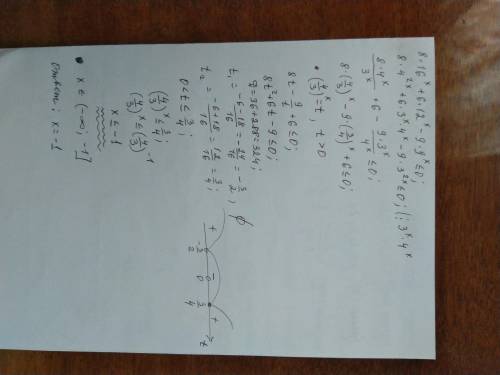 8·16ˣ+6·12ˣ-9·9ˣ≤0;
8·4²ˣ+6·3ˣ·4ˣ-9·3²ˣ≤0; |: 3ˣ·4ˣ
8·4ˣ/3ˣ +6 - 9·3ˣ/4ˣ ≤0;
8·(4/3)ˣ - 9·(3/4)ˣ +6≤0;
• (4/3)ˣ=t, t>0
8t - 9/t +6≤0;
8t²+6t-9≤0;
D=36+288=324;
t₁ = (-6-18)/16 = -24/16 = -3/2; ∅
t₂ = (-6+18)/16 = 12/16 = 3/4;
+ -3/2 0 - 3/4 + t
0<t≤3/4;
(4/3)ˣ≤3/4;
(4/3)ˣ≤(4/3)⁻¹
x≤-1
• x∈(-∞;-1]
Ответ: x=-1